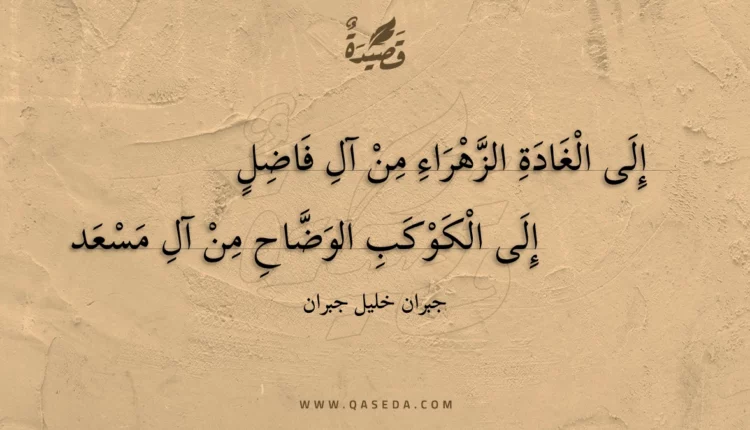 قَصِيْدَةٌ
إِلَى الْغَادَةِ الزَّهْرَاءِ مِنْ آلِ فَاضِلٍ
إِلَى الْكَوْكَبِ الوَضَّاحِ مِنْ آلِ مَسْعَد
جبران خليل جبران
WWW.QASEDA.COM